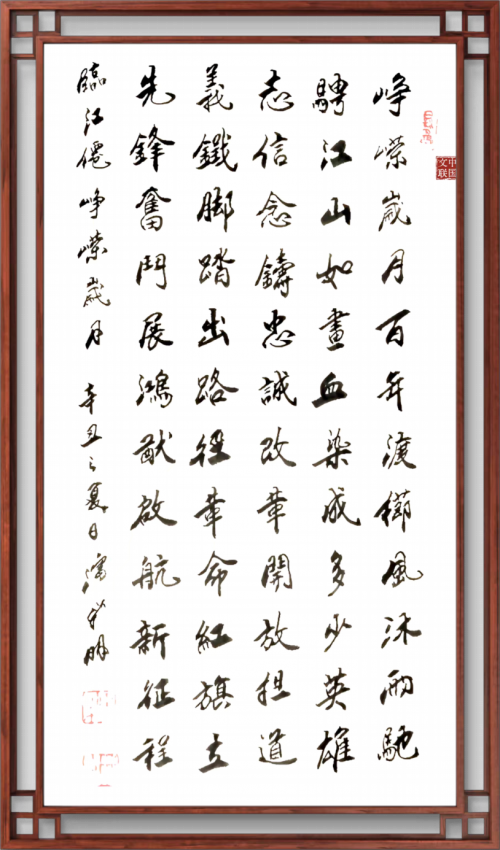 崢嶸歲月百年渡櫛風沐雨馳
騁江山如畫血染成多少英雄
志信念鑄忠誠改革開放担道
義鐵脚踏出路徑革命紅旗立
先鋒奮鬥展鴻猷啟航新征程
臨江僊崢嶸歲月 辛丑之夏日 明
中国文联